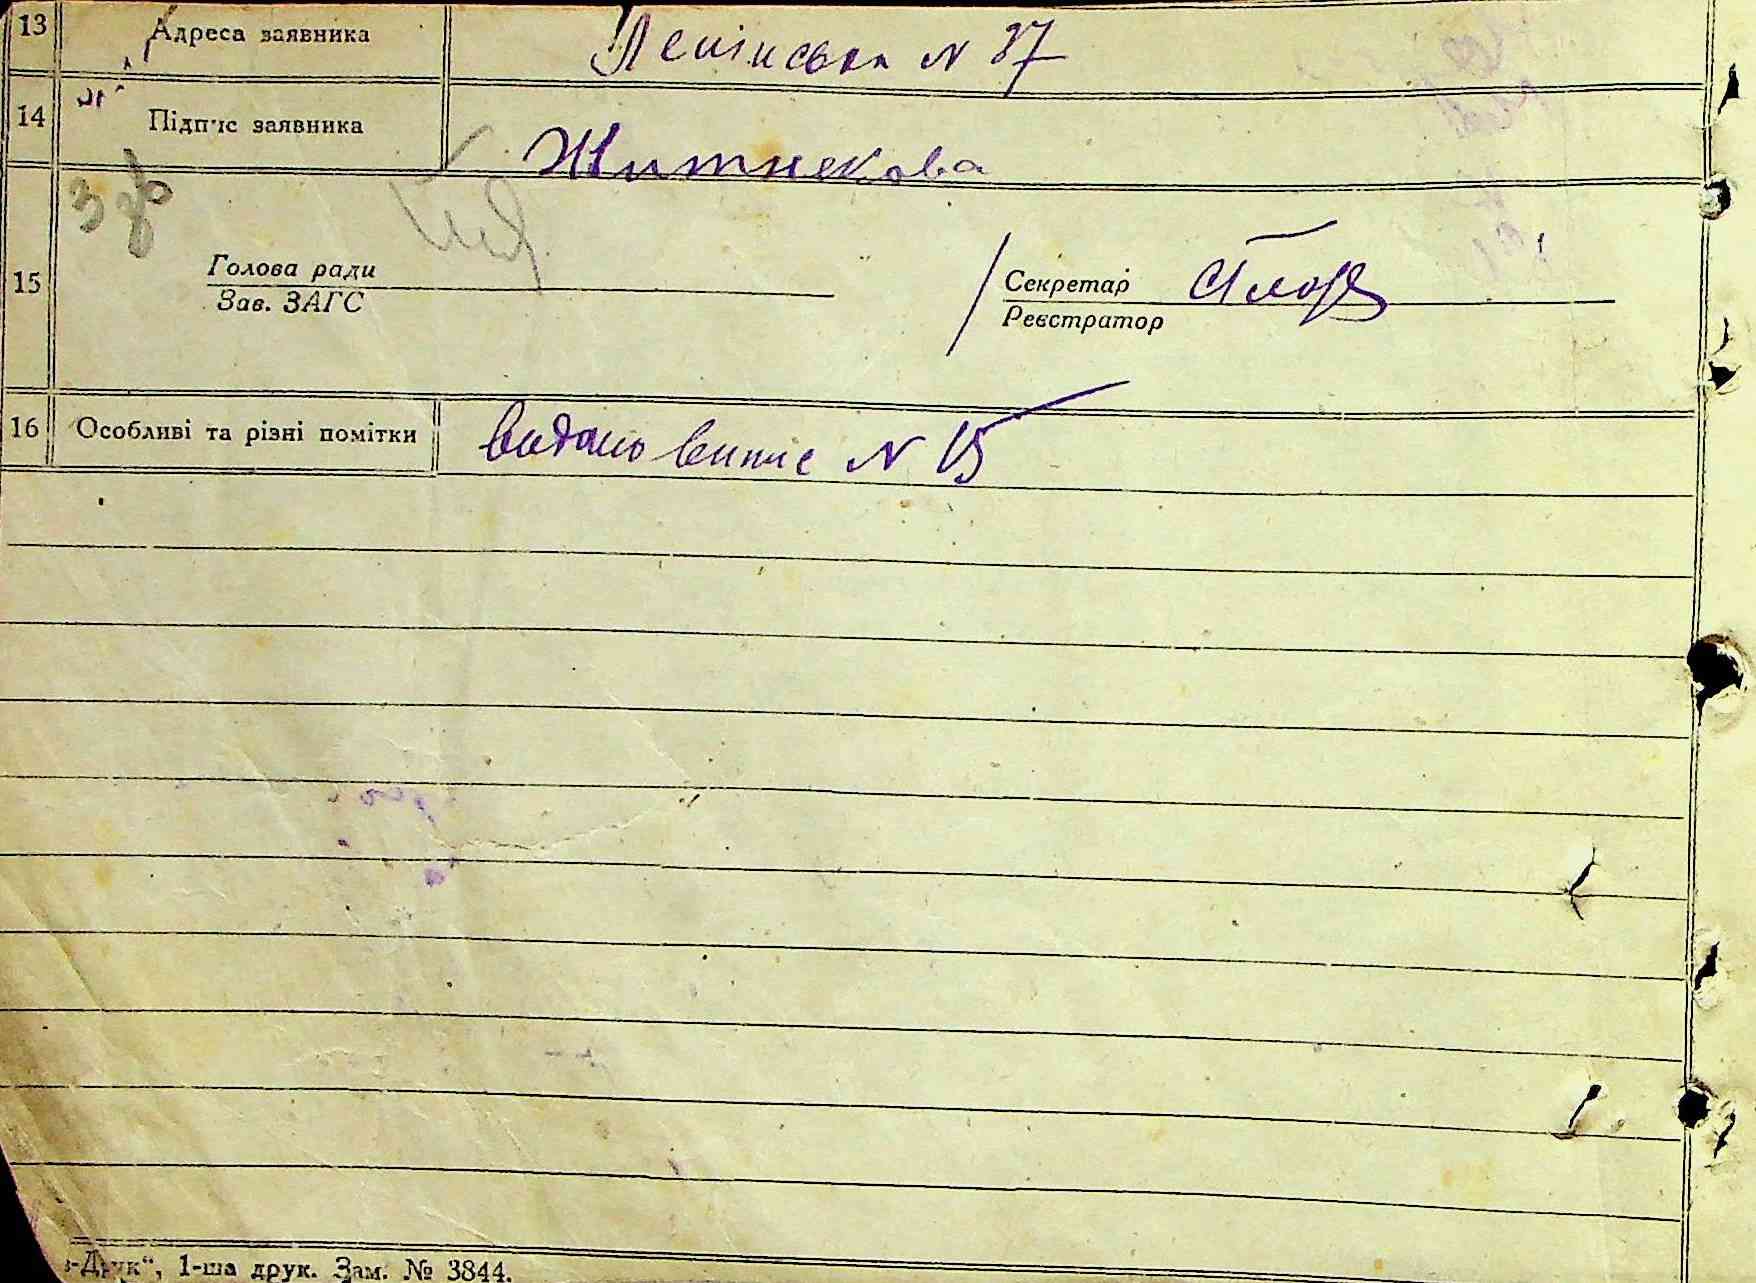 13 Адреса заявника Ленінська N 37
14 Підпис заявника Житнекова
15 Голова ради Секретар
Зав. ЗАГС Реєстратор
16 Особливі та різні помітки Видано витпис N 15
-Друк“, 1-ша друк. Зам. № 3844.